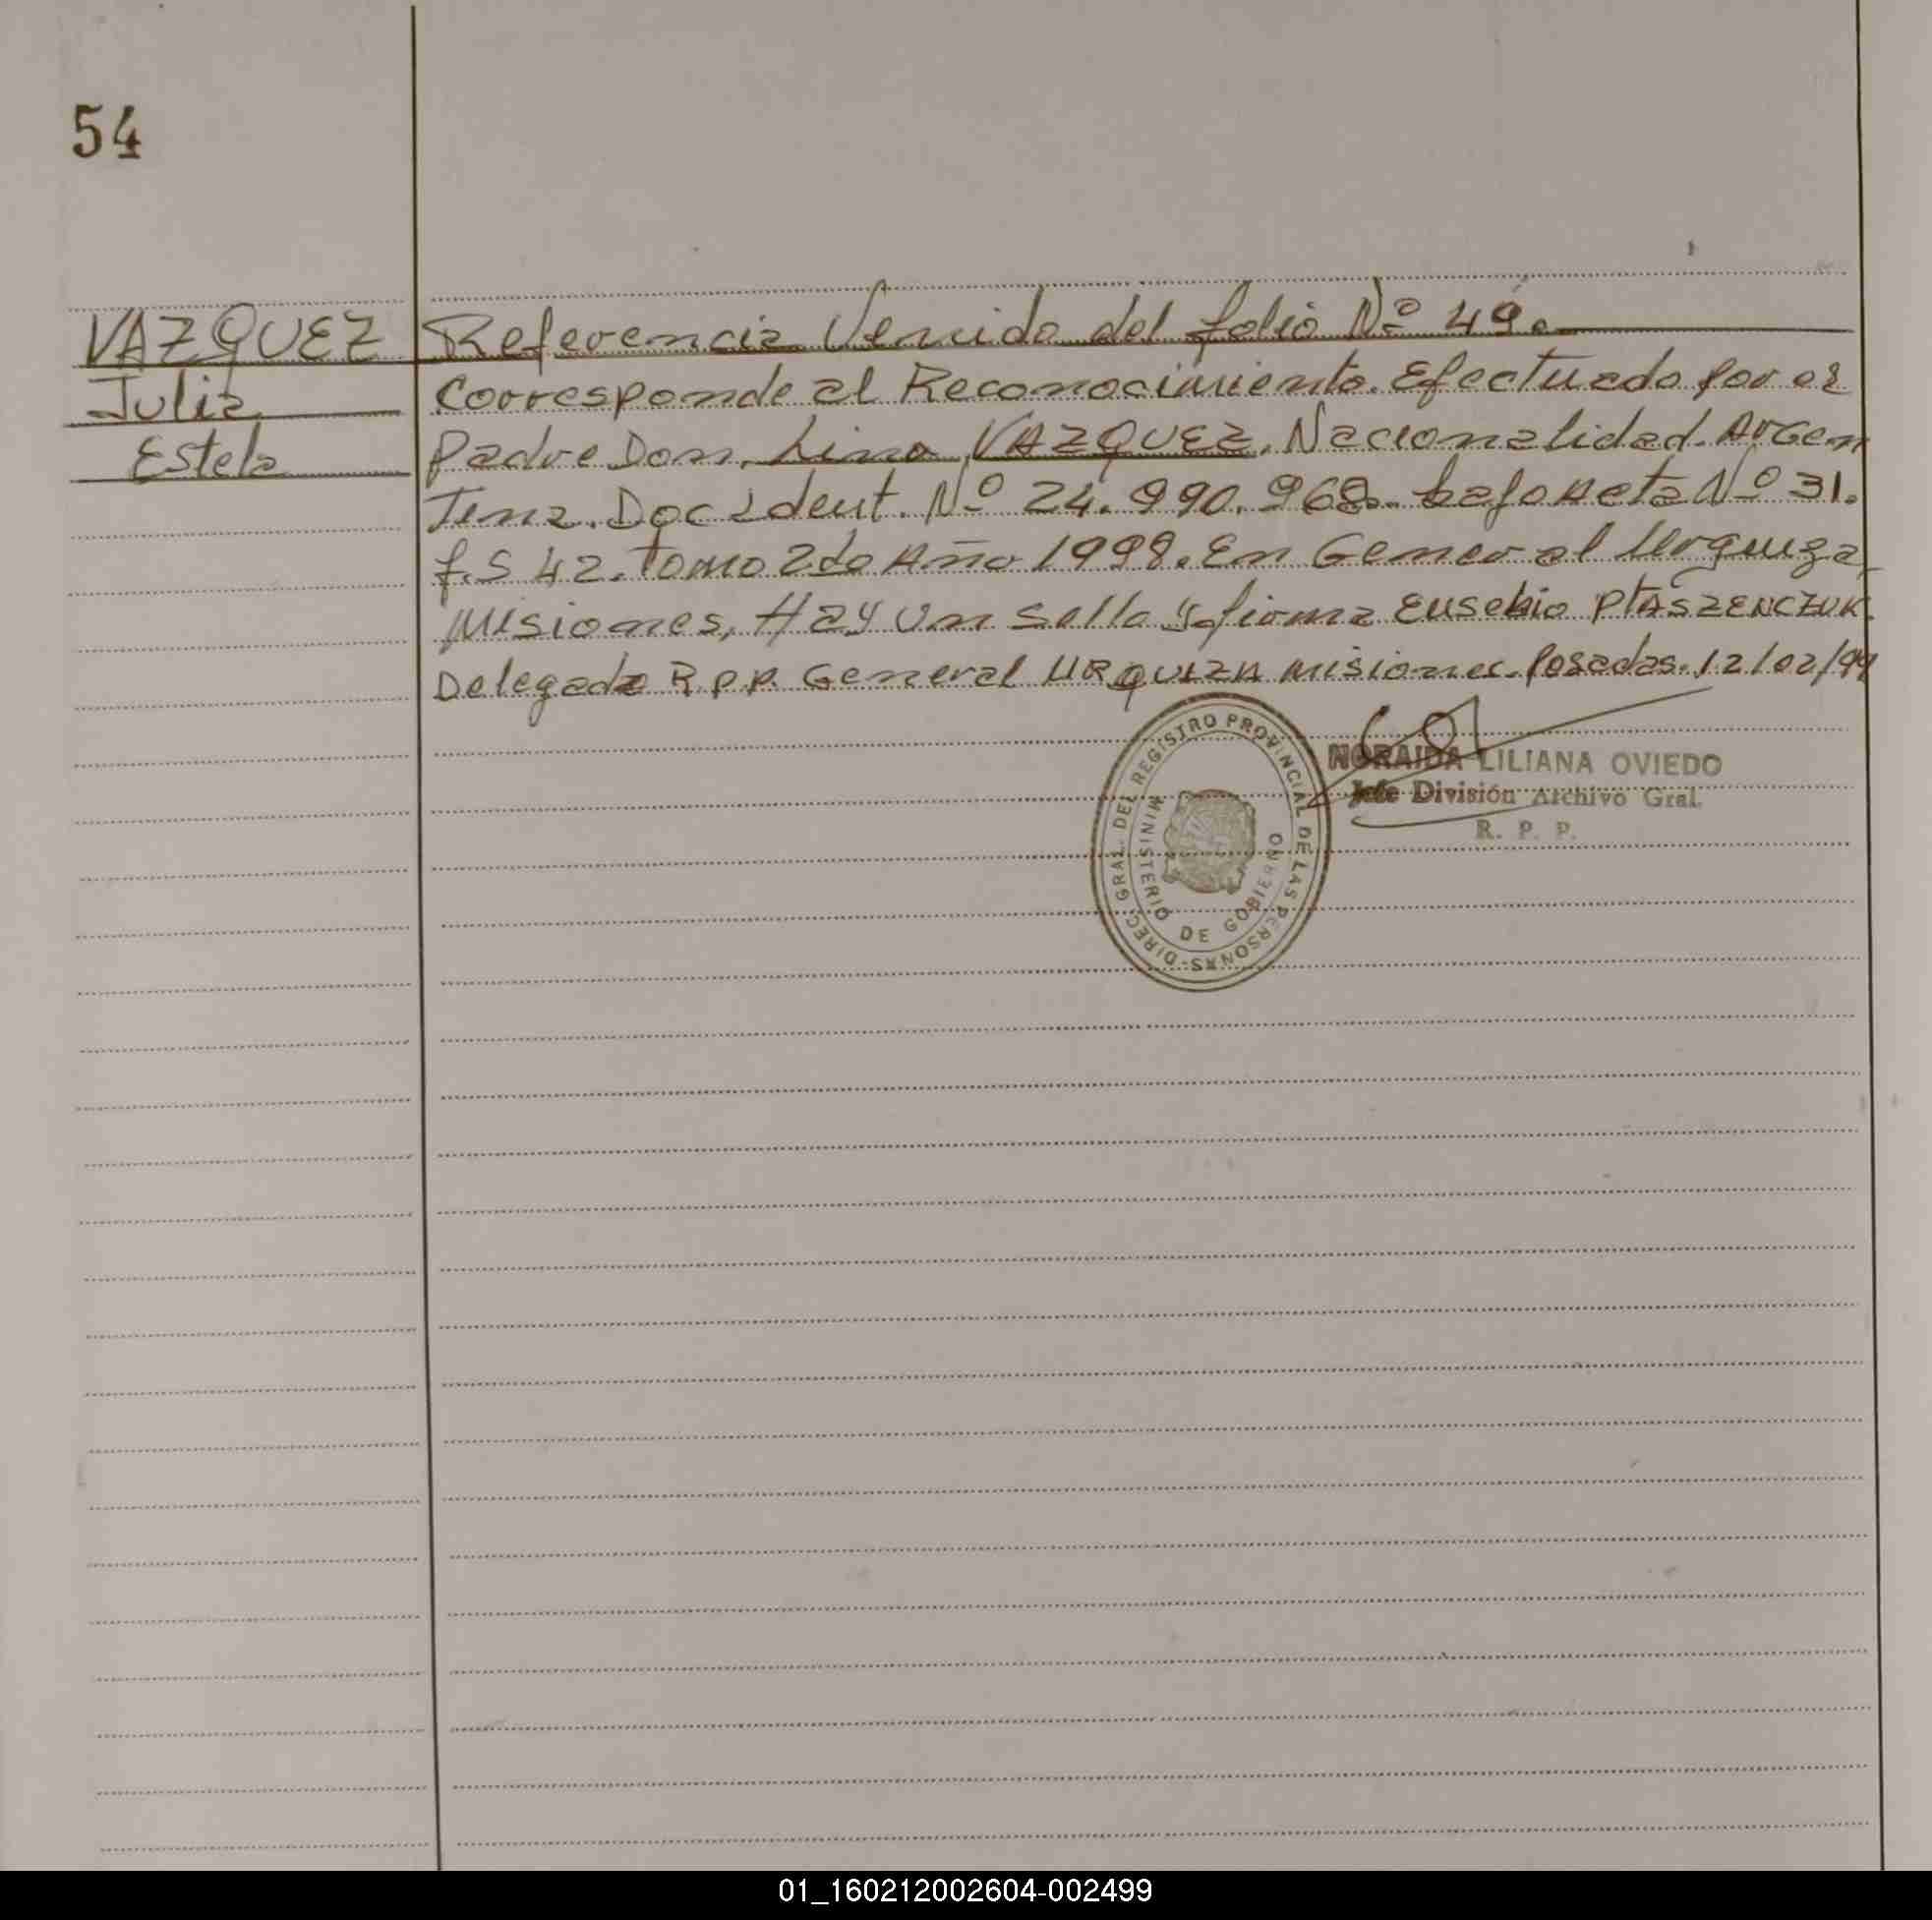 54
VAZQUEZ
Julia
Estela
Referencia Venida del folio Nº 49.
Corresponde al Reconocimiento. Efectuado por el
Padre Don, Lino VAZQUEZ. Nacionalidad. Argen
Tina. Doc ident. Nº 24.990.968. bajo Acta Nº 31.
f.S 42. Tomo 2do Año 1998. En General Urquiza,
Misiones, Hay un sello y firma Eusebio PtASZENCZUK.
Delegado R.P.P. General URQUIZA Misiones. Posadas. 12/02/99
DIREC. GRAL. DEL REGISTRO PROVINCIAL DE LAS PERSONAS
MINISTERIO DE GOBIERNO
NORAIDA LILIANA OVIEDO
Jefe División Archivo Gral.
R. P. P.
01_160212002604-002499